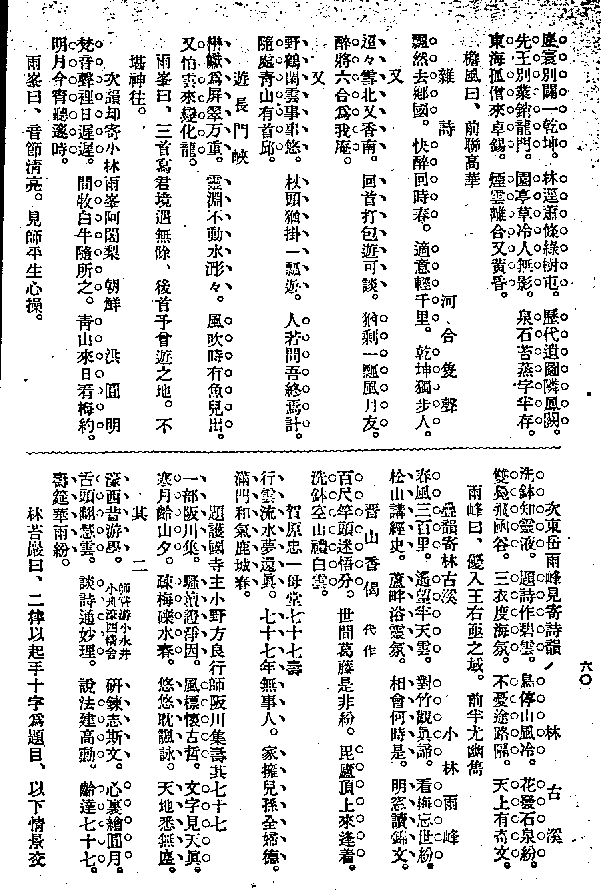 塵寰別闢一乾坤。林逕蕭條綠樹屯。歷代遺園隣鳳闕。
先王別業鎖龍門。園亭草冷人無影。泉石苔蒸字半存。
東海孤僧來卓錫。煙雲離合又黃昏。
檐風曰、前聯高華
雜詩 河合隻聲
飄然去鄉國。快醉回時春。適意輕千里。乾坤獨步人。
又
迢々雲北又香南。回首打包遊可談。猶剩一瓢風月友。
醉將六合爲我庵。
又
野鶴閑雲事事悠。杖頭猶掛一瓢遊。人若問吾終焉計。
隨處青山有首邱。
遊長門峽
巒巘爲屏翠万重。靈淵不動水溶々。風吹時有魚兒出。
又怕雲來變化龍。
雨峯曰、三首寫君境遇無除、後首予曾遊之地。不
堪神往。
次韻却寄小林雨峯阿闍梨 朝鮮 洪圓明
梵音聲裡日遲遲。問牧白牛隨所之。青山來日看梅約。
明月今宵聽邃時。
雨峯曰、音節淸亮。見師平生心操。
六〇
次東岳雨峰見寄詩韻 林古溪
洗鉢知靈液。題詩作碧雲。鳥停山風冷。花發石泉紛。
雙鳧飛國谷。三衣度海氛。不憂途路隔。天上有奇文。
雨峰曰、優入王右丞之域。前半尤幽雋
疊韻寄林古溪 小林雨峰
春風三百里。遙望半天雲。對竹觀眞諦。看梅忘世紛。
松山講經史。蘆畔浴靈氛。相會何時是。明窓讀錦文。
晋山香偈 代作
百尺竿頭迷悟分。世間葛藤是非紛。毘盧頂上來逢着。
洗鉢空山禮白雲。
賀原忠一母堂七十七壽
行雲流水夢還眞。七十七年無事人。家擁兒孫全婦德。
滿門和氣鹿城春。
題護國寺主小野方良行師阪川集壽其七十七
一部阪川集。騷壇證淨因。風標懷古哲。文字見天眞。
寒月餘山夕。疎梅磯水春。悠悠耽諷詠。天地悉無塵。
其二
濠西昔游學。師曾游小永井小舟濠西精舍 研鍊志斯文。心裏繪圓月。
舌頭翻慧雲。談詩通妙理。說法建高勳。齡達七十七。
壽筵華雨紛。
林苔巖曰、二律以起手十字爲題目、以下情景交